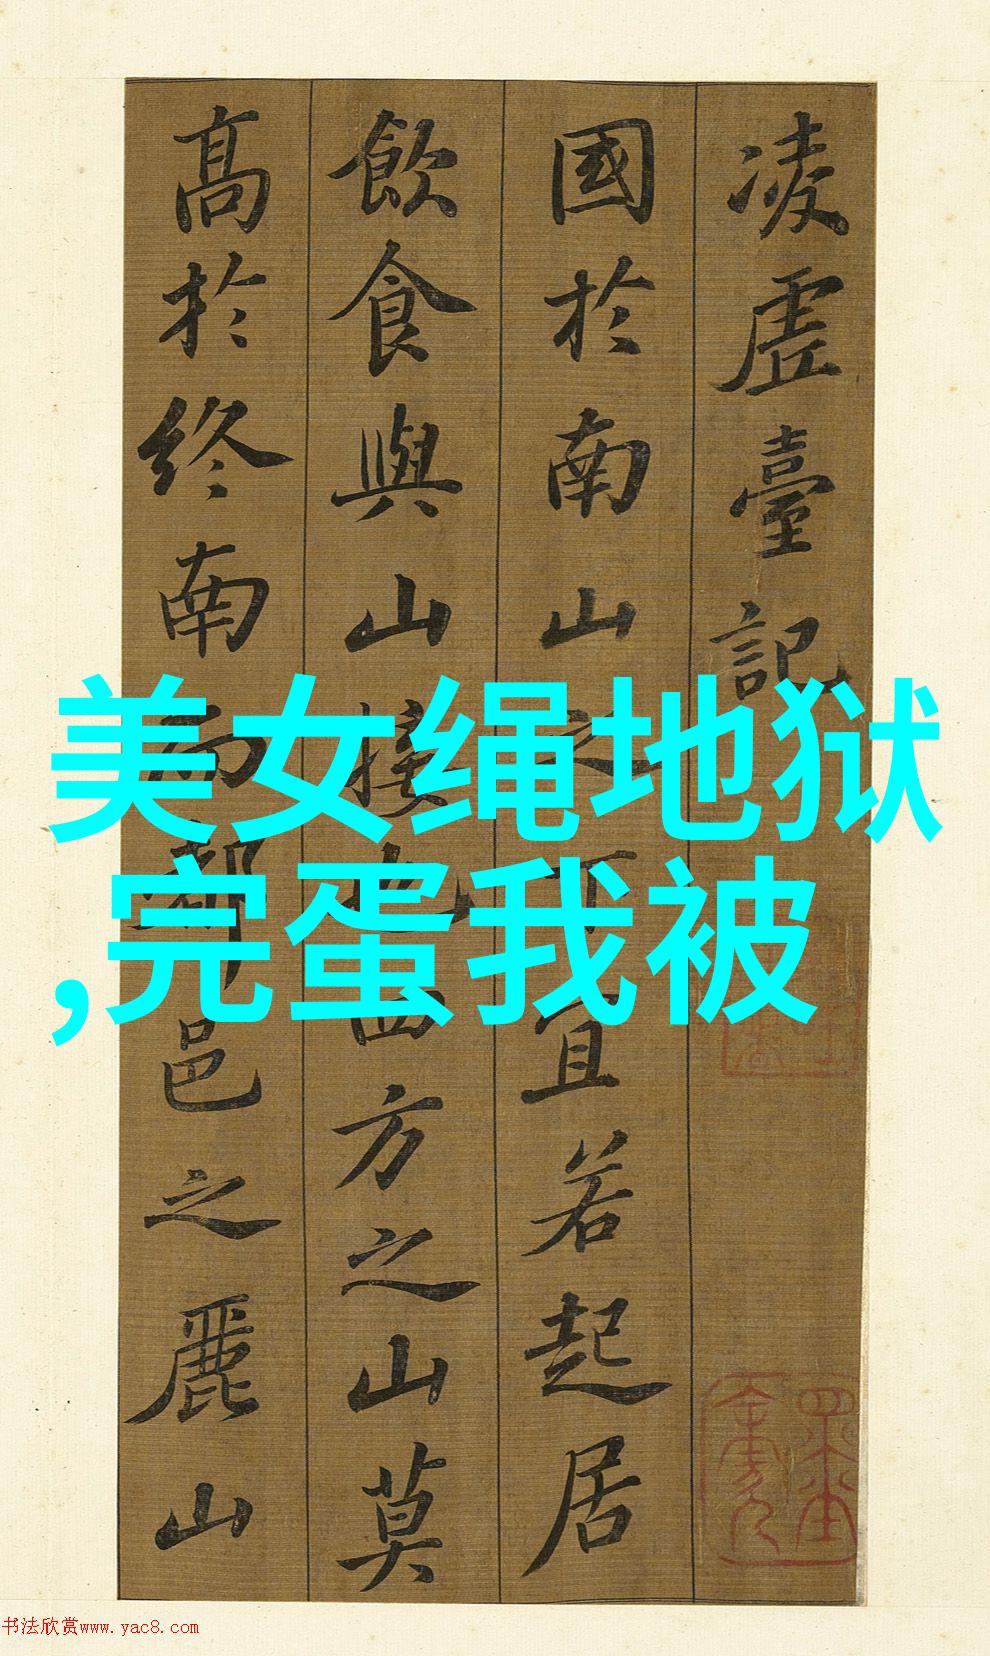 凌虚臺記
國於南山之下宜若起居
飲食與山接也四方之山莫
高於終南而都邑之麗山
美女绳地狱
,完蛋我被
书法欣赏www.yac8.com